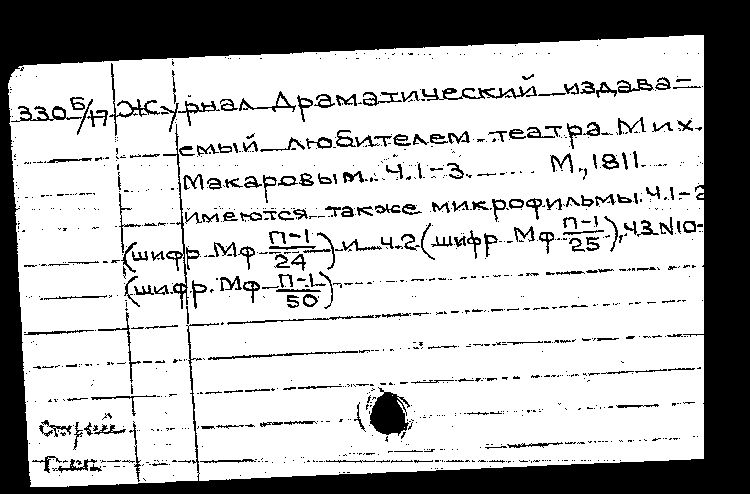 330 Б/17 Журнал Драматический издава-
емый любителем театра Мих.
Макаровым. Ч.1-3. М., 1811
имеются также микрофильмы: Ч.1-2
(шифр Мф П-1/24) и ч.2 (шифр Мф П-1/25), ч3 N10-
(шифр. Мф П-1/50)
Старый